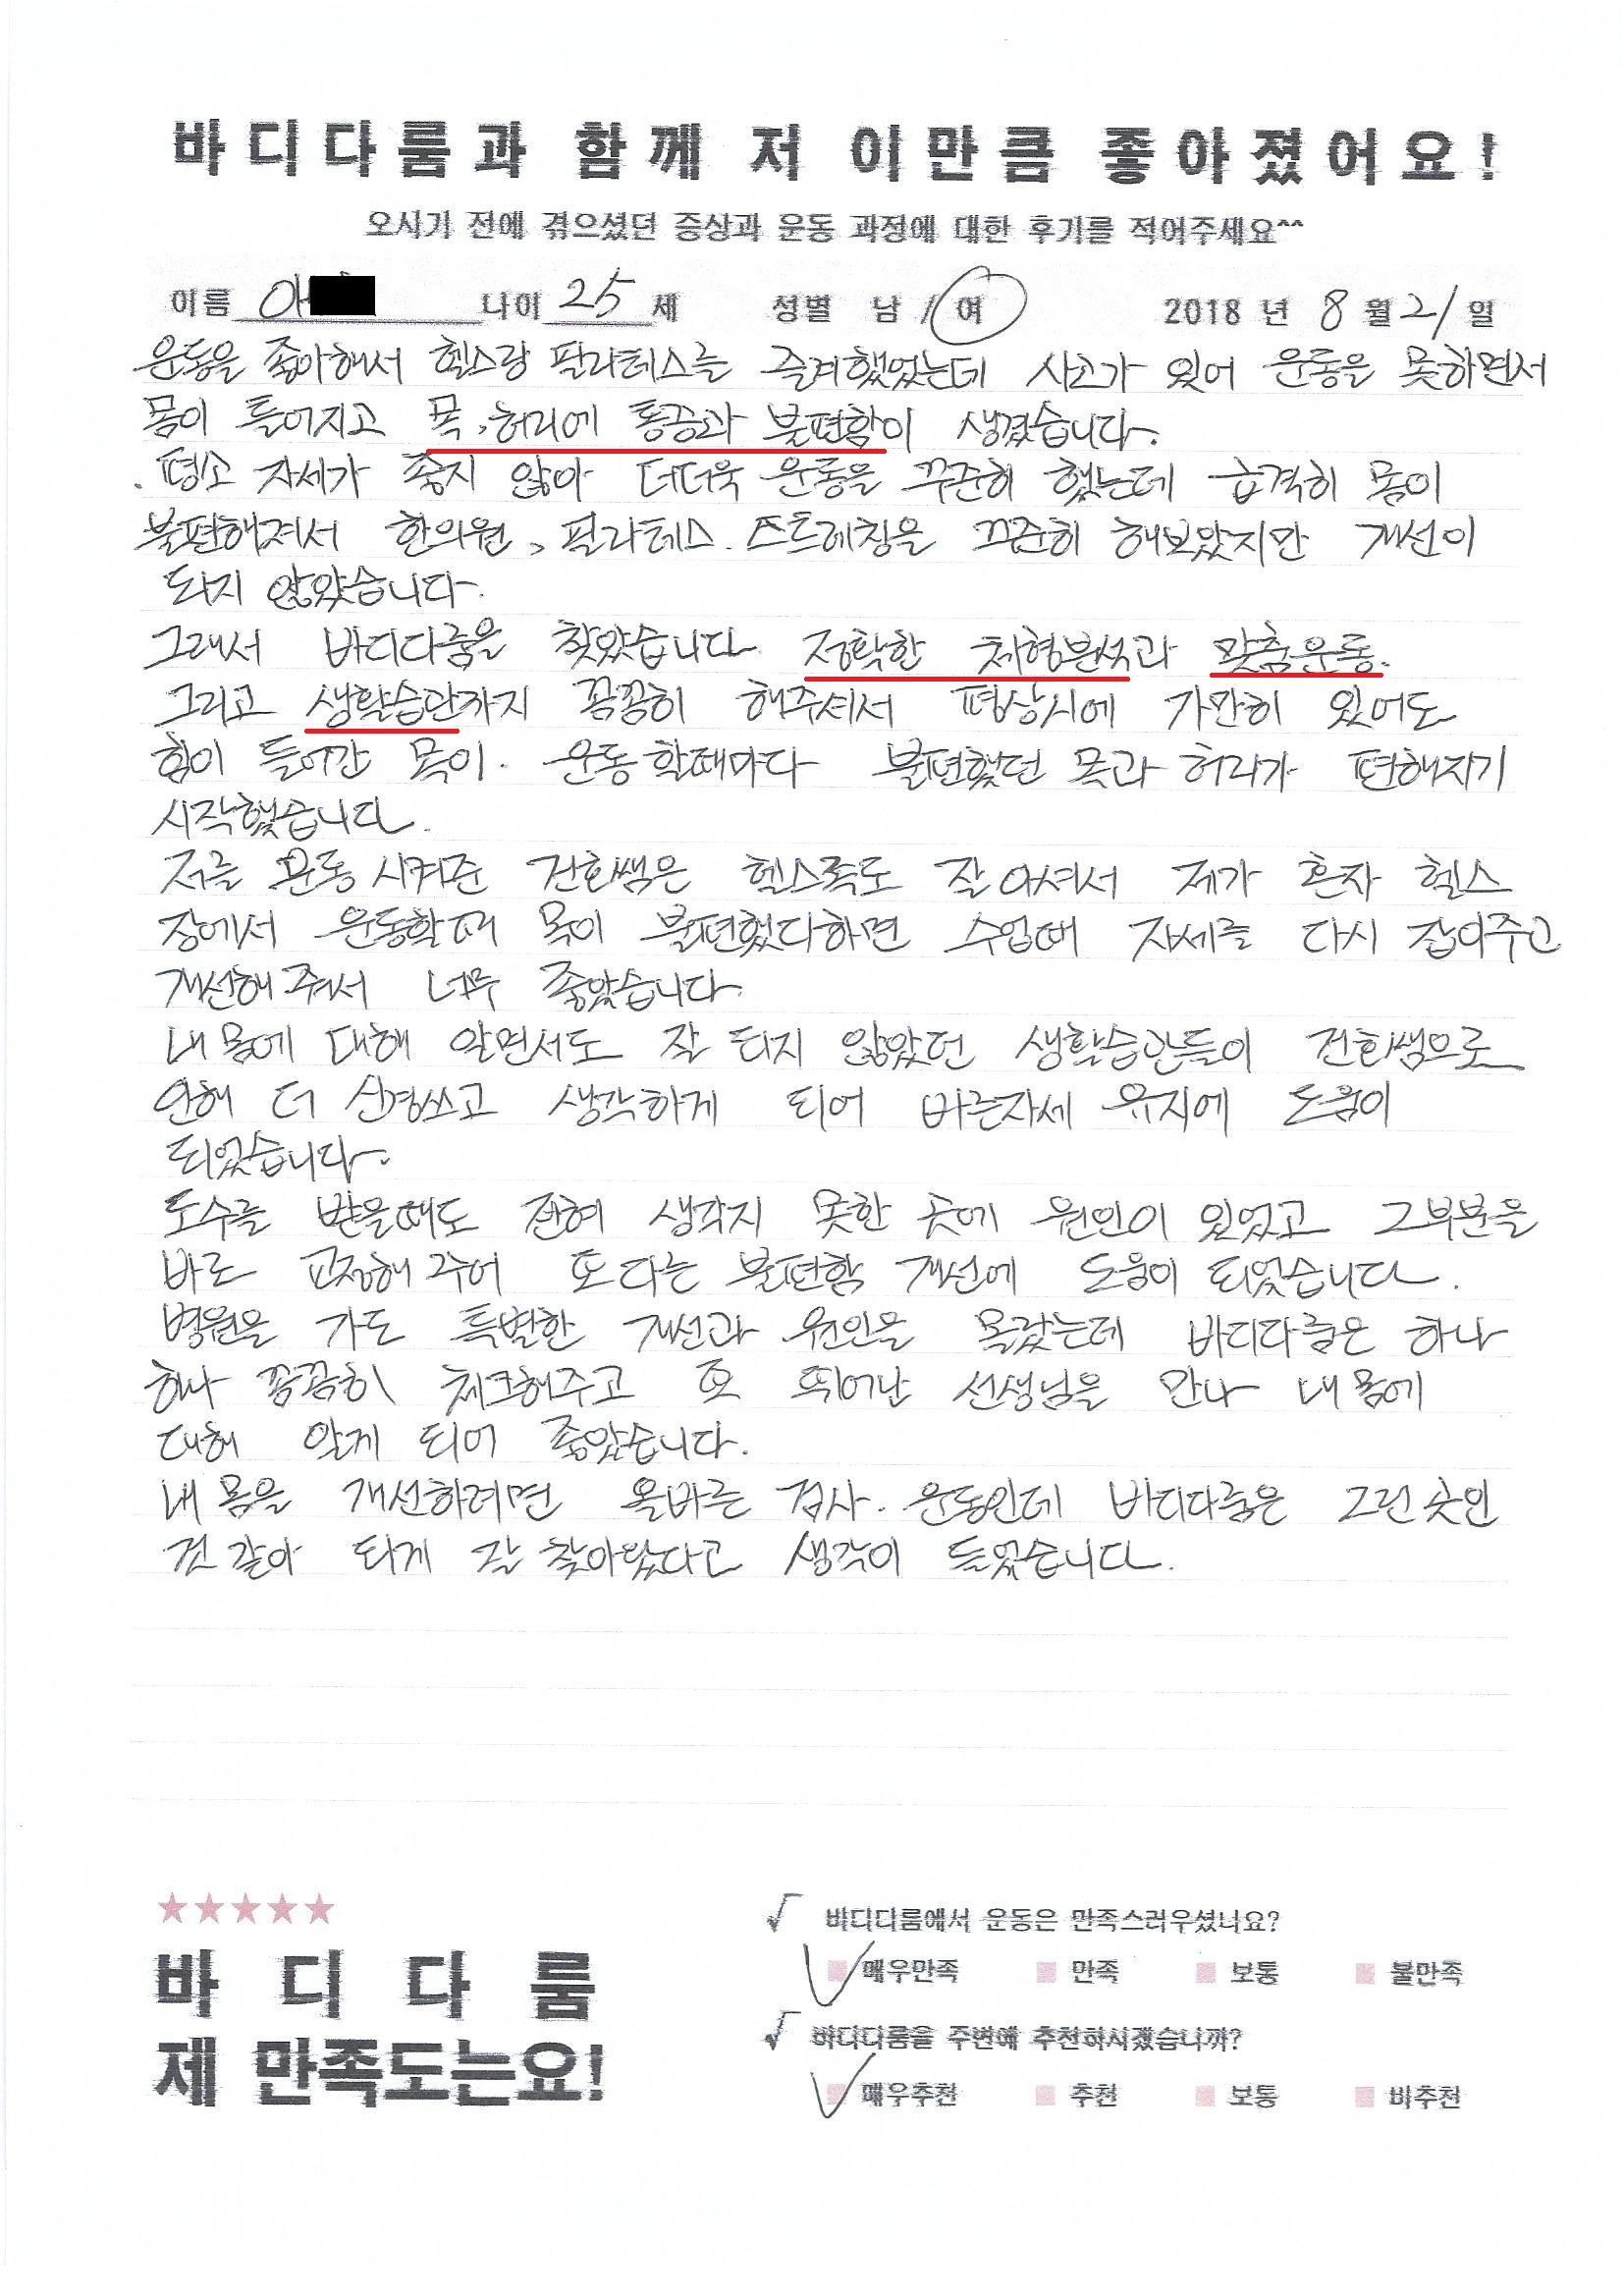 바디다룸과 함께 저 이만큼 좋아졌어요!
오시기 전에 겪으셨던 증상과 운동 과정에 대한 후기를 적어주세요^^
이름 나이 25 세 성별 남 / 여 2018 년 8 월 21 일
운동을 좋아해서 헬스랑 필라테스를 즐겨했었는데 사고가 있어 운동을 못하면서
몸이 틀어지고 목, 허리에 통증과 불편함이 생겼습니다.
. 평소 자세가 좋지 않아 더더욱 운동을 꾸준히 했는데 급격히 몸이
불편해져서 한의원, 필라테스. 스트레칭을 꾸준히 해보았지만 개선이
되지 않았습니다.
그래서 바디다룸을 찾았습니다. 정확한 체형분석과 맞춤운동.
그리고 생활습관까지 꼼꼼히 해주셔서 평상시에 가만히 있어도
힘이 들어간 목이. 운동 할때마다 불편했던 목과 허리가 편해지기
시작했습니다.
저를 운동 시켜준 건희쌤은 헬스쪽도 잘 아셔서 제가 혼자 헬스
장에서 운동할때 목이 불편했다하면 수업때 자세를 다시 잡아주고
개선해 줘서 너무 좋았습니다.
내 몸에 대해 알면서도 잘 되지 않았던 생활습관들이 건희쌤으로
인해 더 신경쓰고 생각하게 되어 바른자세 유지에 도움이
되었습니다.
도수를 받을때도 전혀 생각지 못한 곳에 원인이 있었고 그부분을
바로 교정해 주어 또 다른 불편함 개선에 도움이 되었습니다.
병원을 가도 특별한 개선과 원인을 몰랐는데 바디다룸은 하나
하나 꼼꼼히 체크해주고 또 뛰어난 선생님을 만나 내 몸에
대해 알게 되어 좋았습니다.
내 몸을 개선하려면 올바른 검사. 운동인데 바디다룸은 그런 곳인
것 같아 되게 잘 찾아왔다고 생각이 들었습니다.
★★★★★
바디다룸
제 만족도는요!
√ 바디다룸에서 운동은 만족스러우셨나요?
매우만족 만족 보통 불만족
√ 바디다룸을 주변에 추천하시겠습니까?
매우추천 추천 보통 비추천